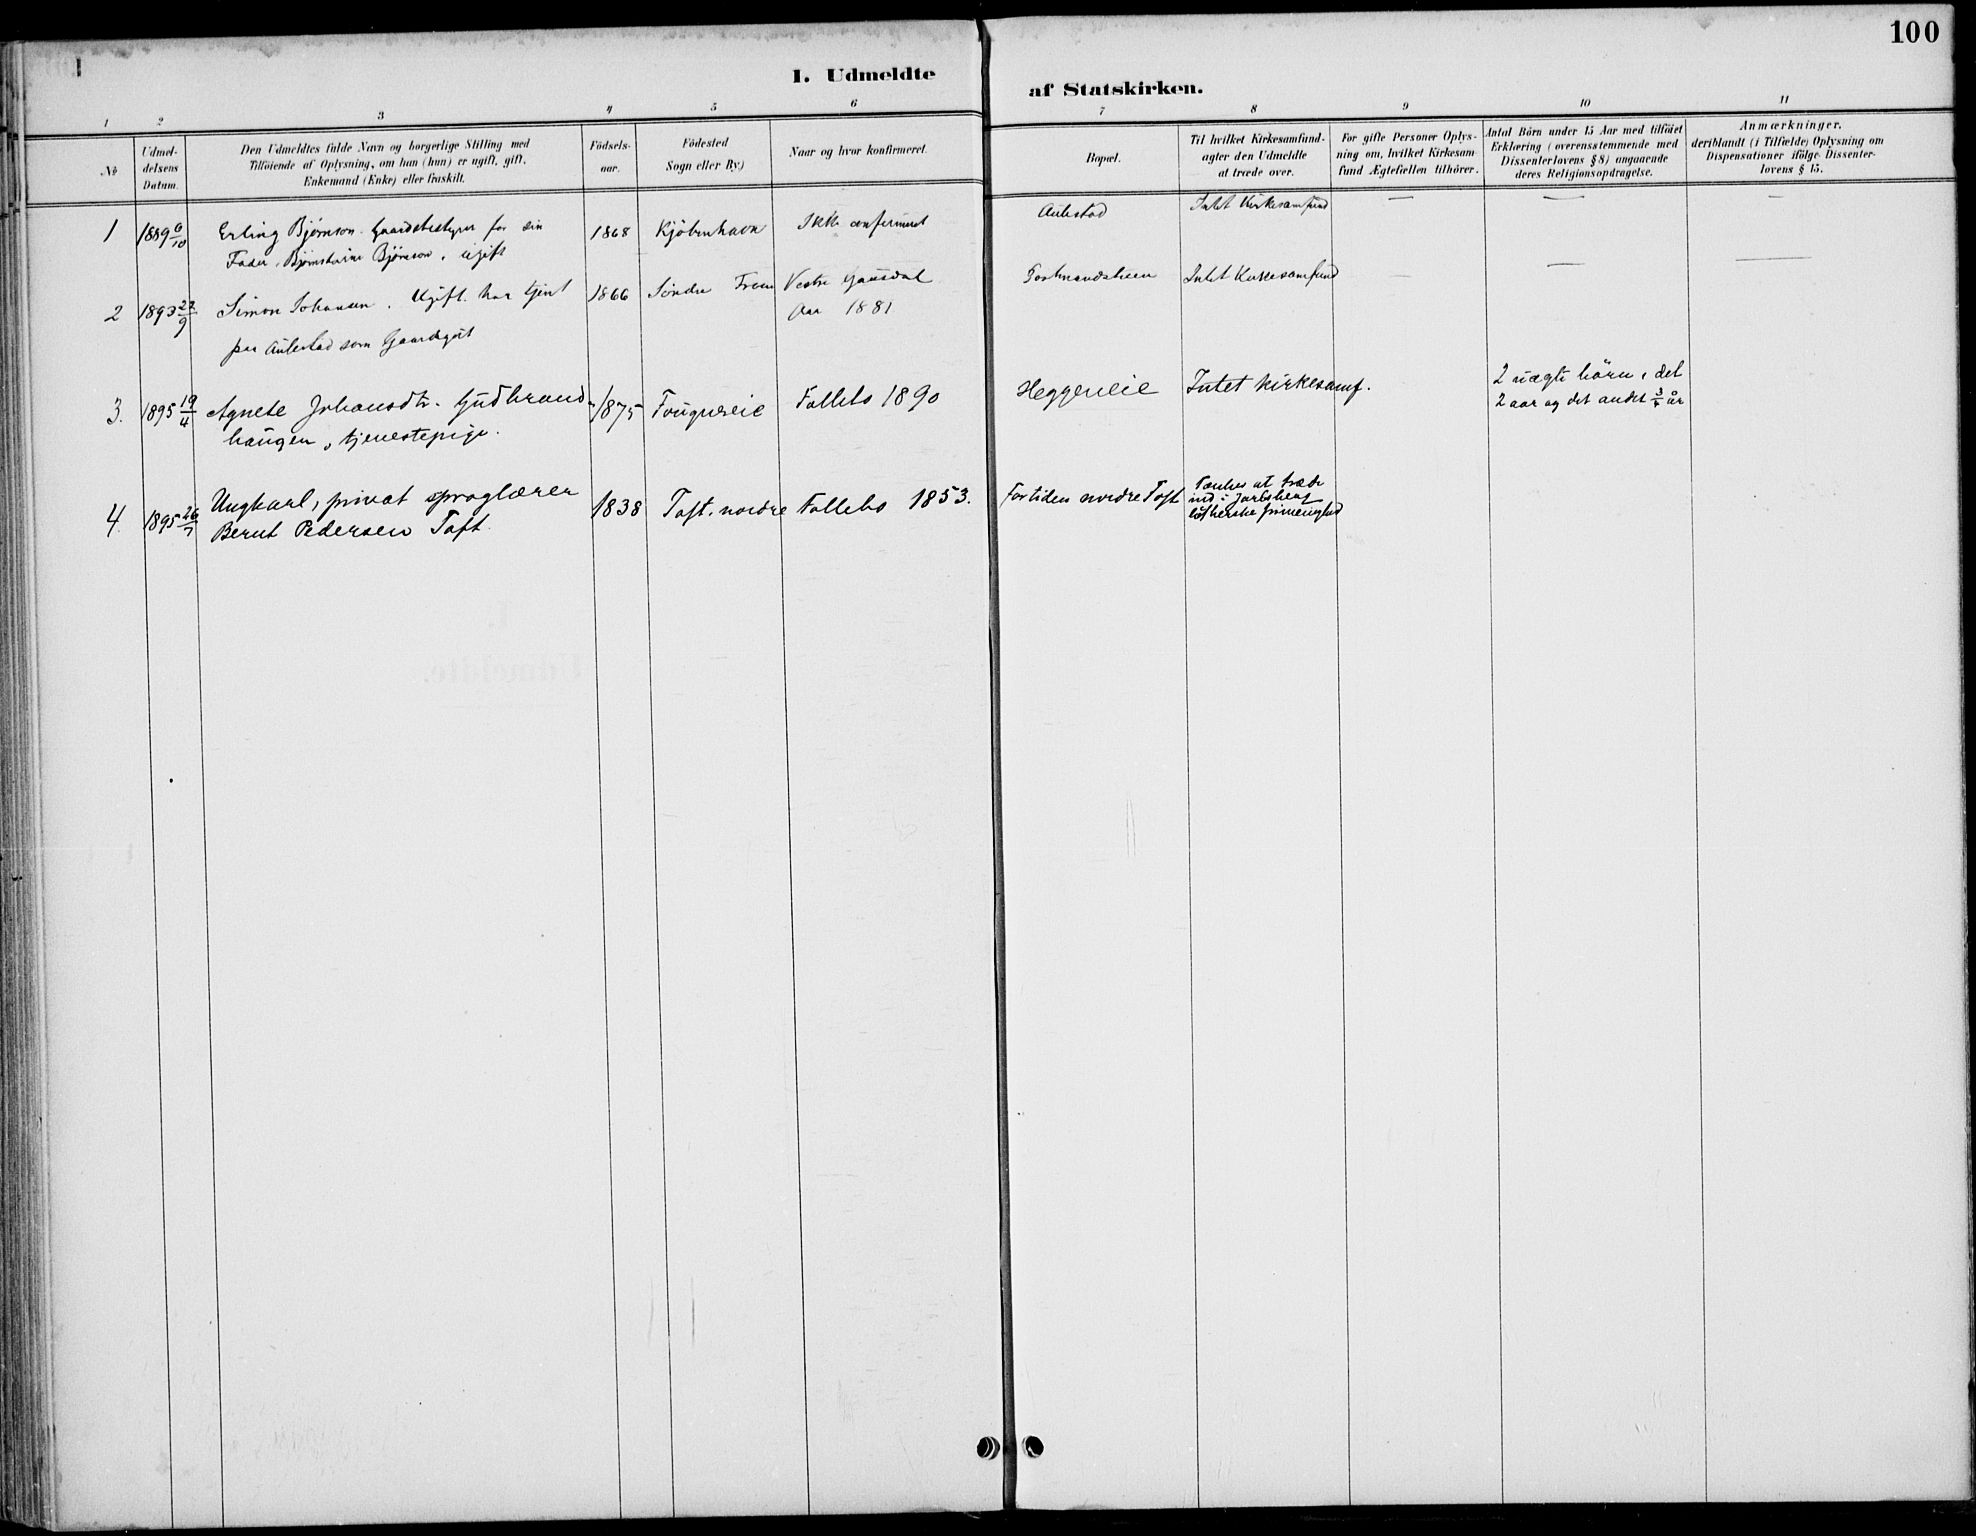 100
1. Udmeldte
af Statskirken.
1 2 3 4 5 6
7 8 9 10 11
№
Udmel-
delsens
Datum.
Den Udmeldtes fulde Navn og borgerlige Stilling med
Tilføiende af Oplysning, om han (hun) er ugift, gift,
Enkemand (Enke) eller fraskilt.
Fødsels-
aar.
Fødested
Sogn eller By.)
Naar og hvor konfirmeret.
Bopæl.
Til hvilket Kirkesamfund
agter den Udmeldte
at træde over.
For gifte Personer Oplys-
ning om, hvilket Kirkesam
fund Ægtefællen tilhører.
Antal Börn under 15 Aar med tilföiet
Erklæring (overensstemmende med
Dissenterlovens § 8) angaaende
deres Religionsopdragelse.
Anmærkninger,
deriblandt (i Tilfælde) Oplysning om
Dispensationer ifölge Dissenter-
lovens § 15.
1
1889 6/10
Erling Bjørnson. Gaardsbestyrer for sin
Fader, Bjørnstjerne Bjørnson, ugift
1868
Kjöbenhavn
Ikke confirmeret
Aulestad
Intet Kirkesamfund
— — —
2
1893 27/9
Simon Johansen. Ugift. har tjent
paa Aulestad som Gaardsgut
1866
Söndre
Vestre Gausdal
Aar 1881
Intet Kirkesamfund
— — —
3.
1895 19/4
Agnete Johansdtr. Gudbrand-
haugen, tjenestepige.
1875
Fallebo 1890
Heggeneie
Intet kirkesamf.
2 uægte börn, det
2 aar og det andet 3/4 år
4.
1895 26/7
Ungkarl, privat sproglærer
Bernt Pedersen Toft
1838
Toft. nordre
Follebo 1853.
For tiden nordre Toft
Tænkes at træde
ind i Jarlsberg
lutherske frimenighed